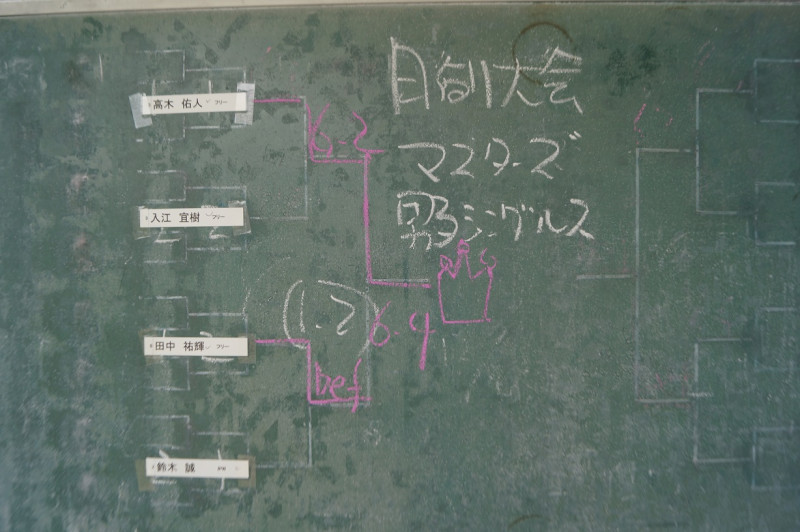 日向大会
マスターズ
男子シングルス
高木 佑人 フリー
6-2
入江 宜樹 フリー
(1.2)
6-4
田中 祐輝 フリー
def
鈴木 誠